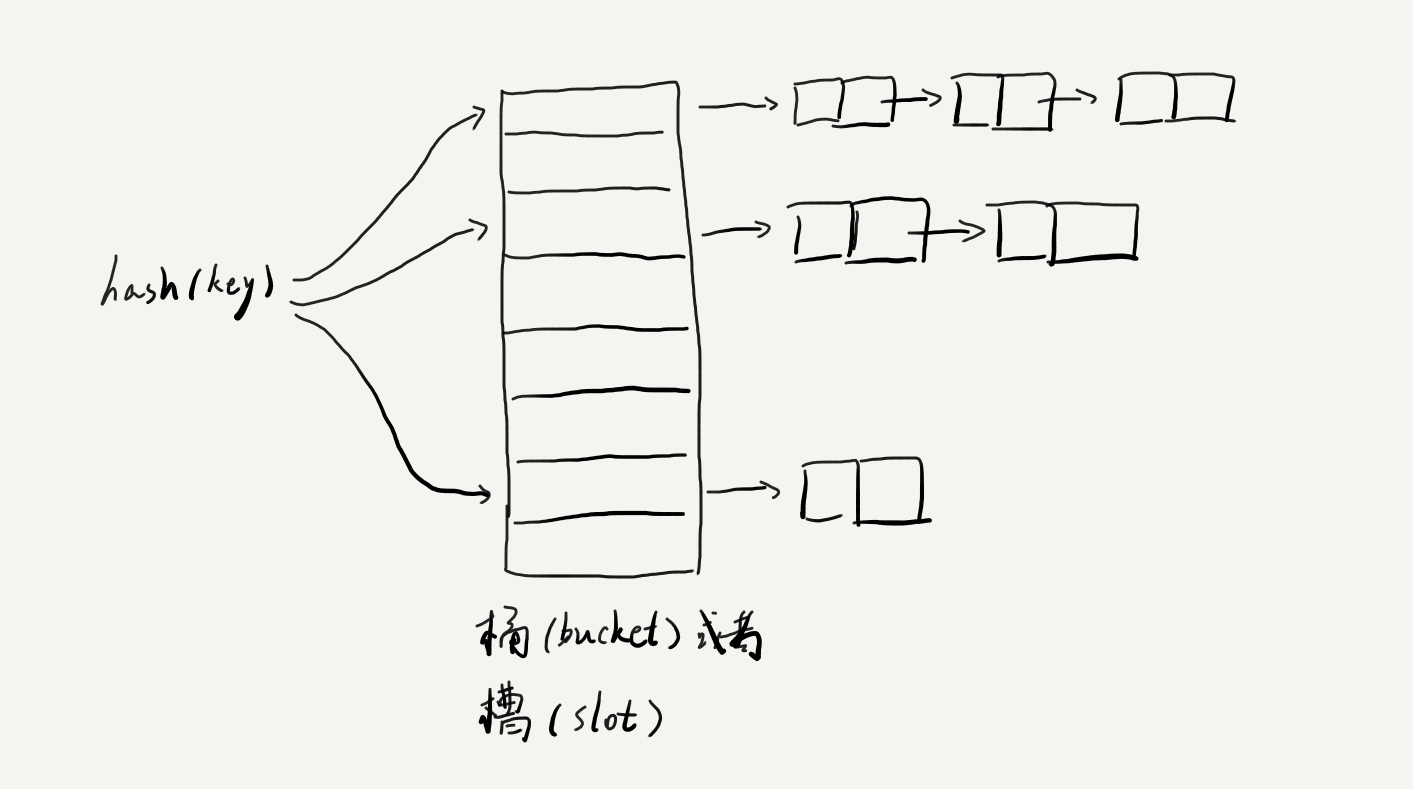 hash(key)
桶(bucket)或者
槽(slot)